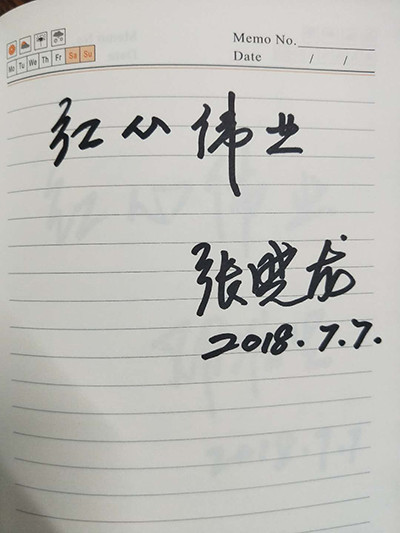 Memo No.
Date / /
Mo Tu We Th Fr Sa Su
红心伟业
张晓龙
2018.7.7.